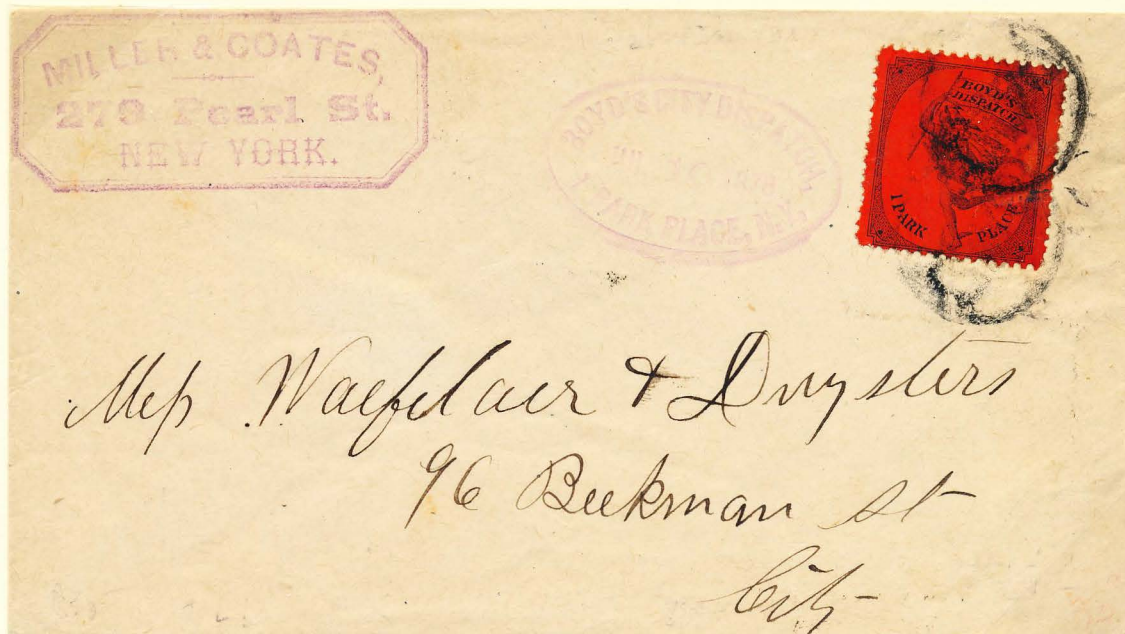 MILLER & COATES,
279 Pearl St.
NEW YORK.
BOYD'S CITY DISPATCH,
1 PARK PLACE, N.Y.
BOYD'S
DISPATCH
1 PARK PLACE
Mess Waefelaer & Duysters
96 Beekman St
City